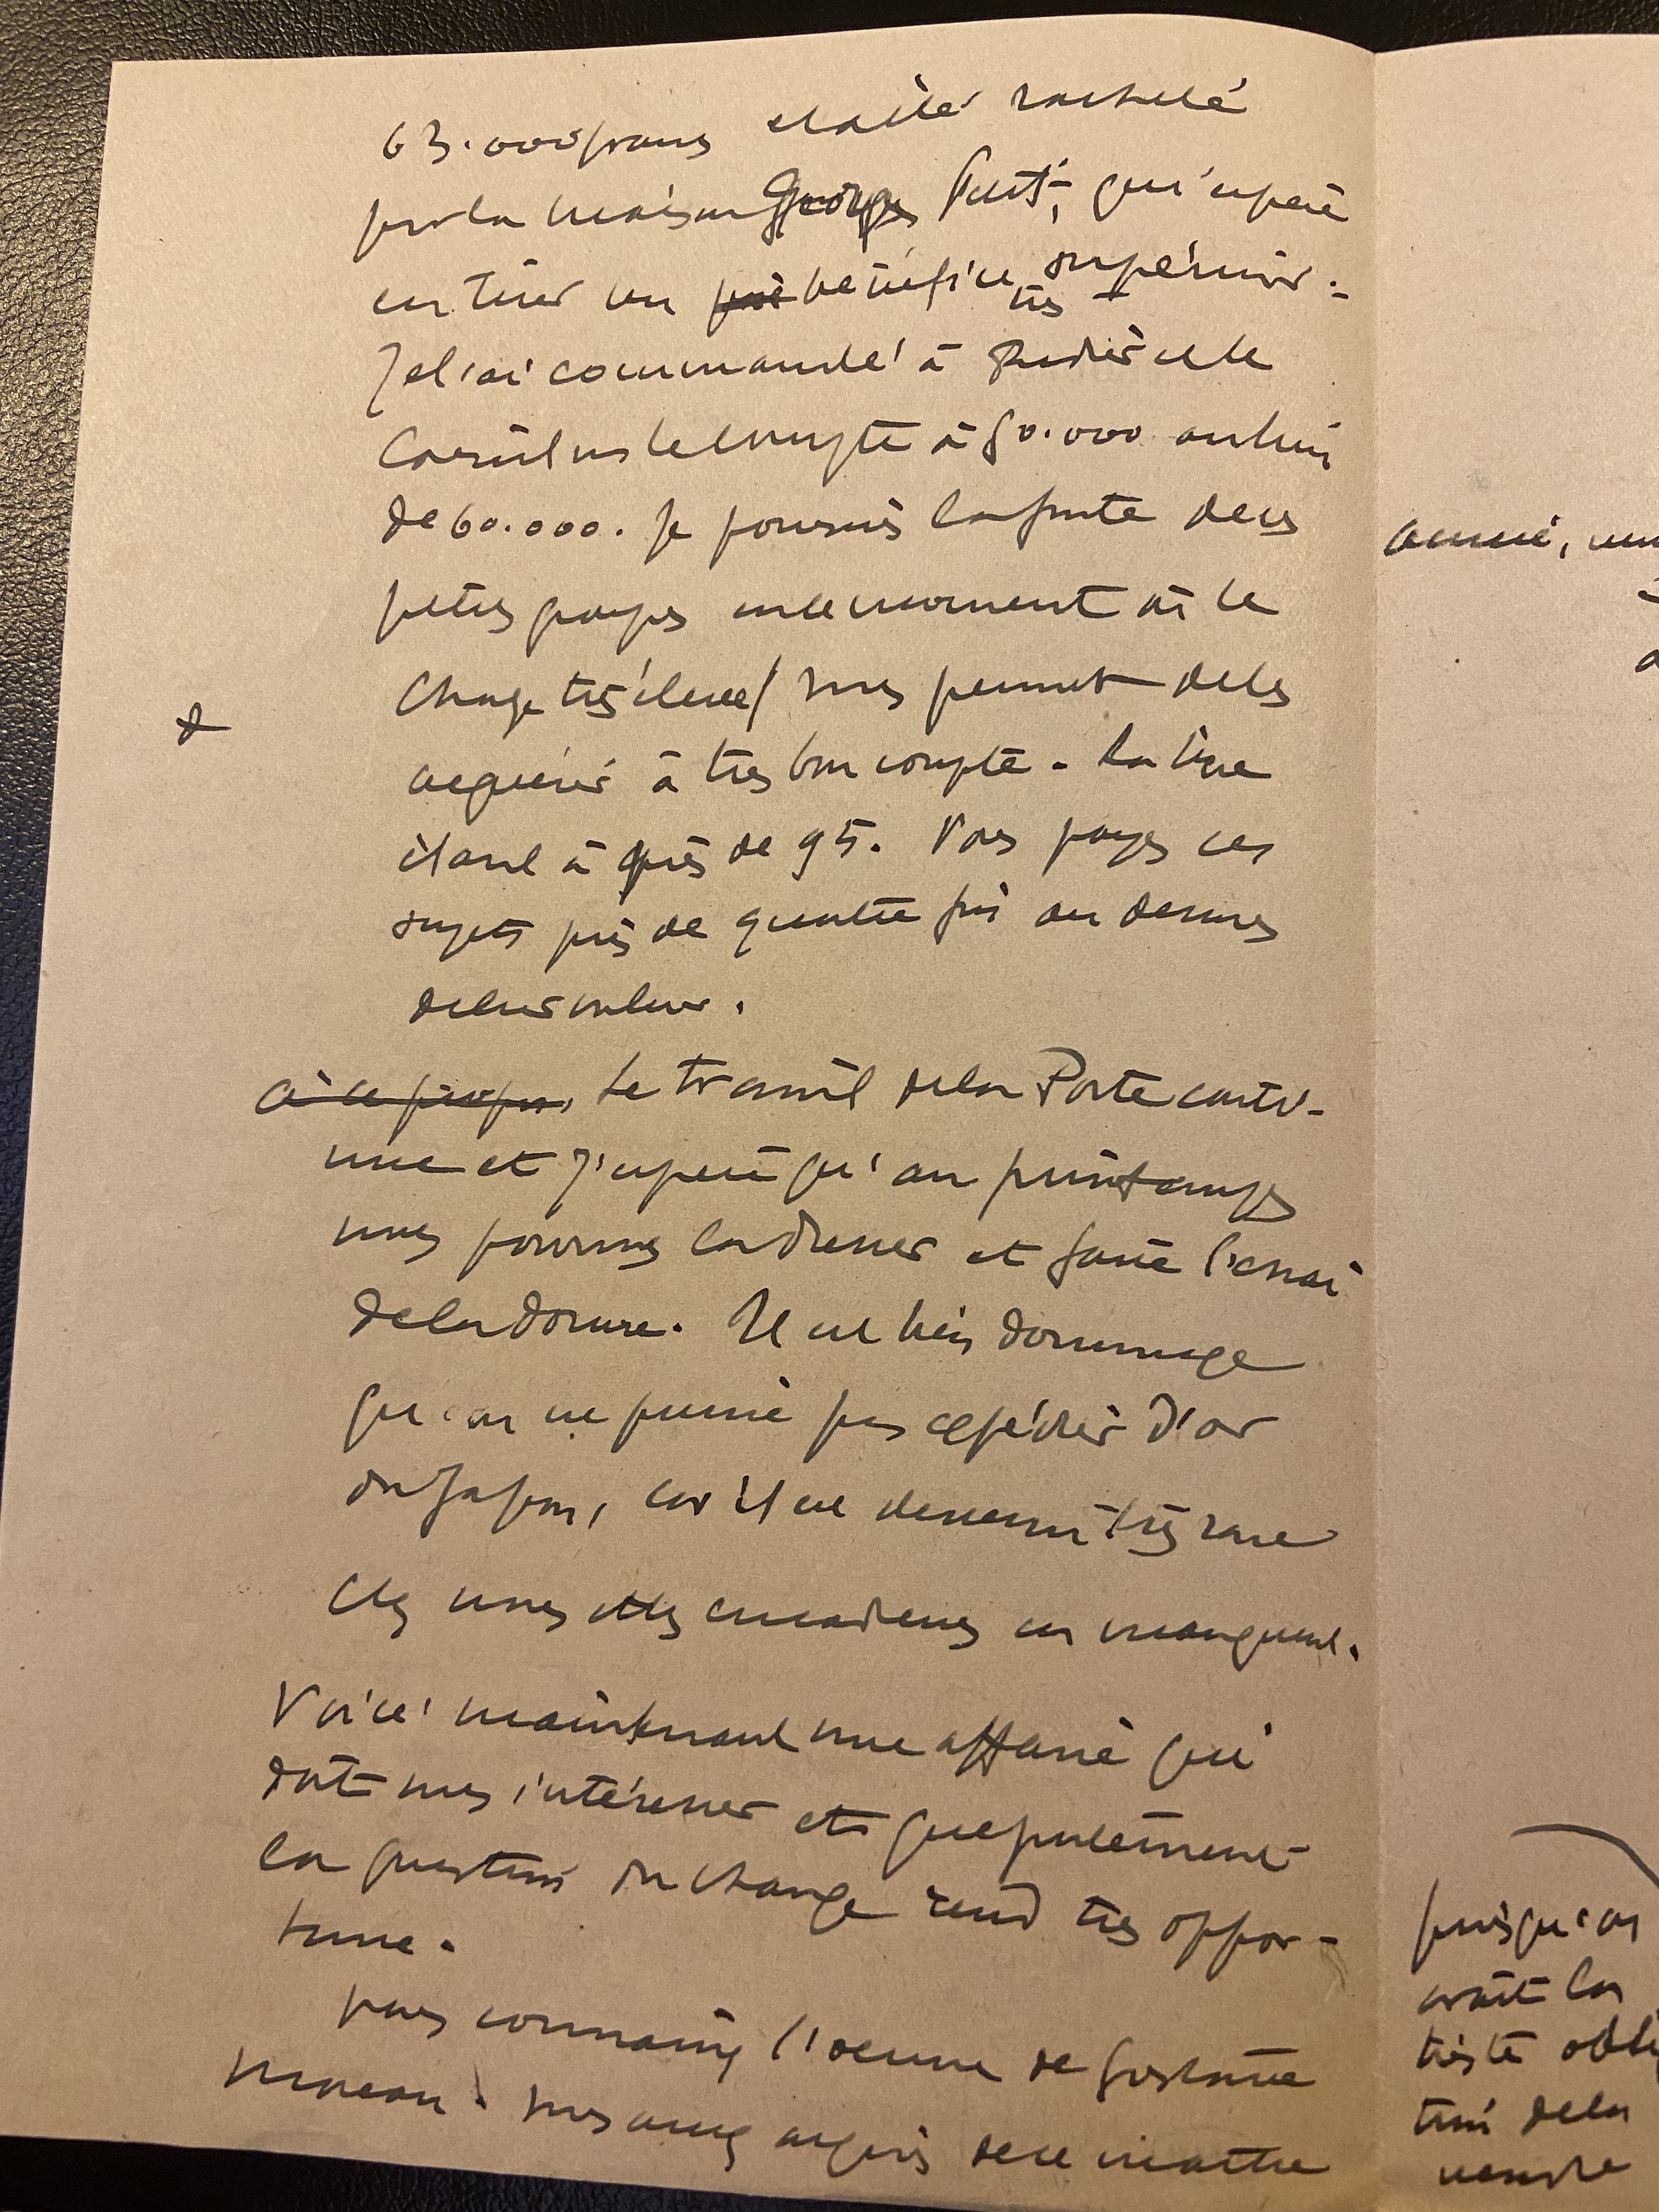 63.000 francs a été racheté
par la maison Georges Petit, qui espère
en tirer un bénéfice très supérieur.
Je l'ai commandé à Rudier et le
Conseil vous le compte à 50.000 au lieu
de 60.000. Je poursuis la fonte de ces
petits groupes en ce moment où le
change très élevé/ vous permet de les
acquérir à très bon compte - La livre
étant à près de 95. Vous payez ces
sujets près de quatre fois au dessous
de leur valeur.
à ce propos, Le travail de la Porte conti-
nue et j'espère qu'au printemps
nous pourrons la dresser et faire l'essai
de la dorure. Il est bien dommage
qu'on ne puisse pas expédier d'or
du Japon, car il est devenu très rare
chez nous et les encadreurs en manquent.
Voici maintenant une affaire qui
doit vous intéresser et que justement
la question du change rend très oppor-
tune.
Vous connaissez l'oeuvre de Gustave
Moreau. Vous avez acquis de ce maître
année,
puisqu'on
avait la
triste
de la
vendre